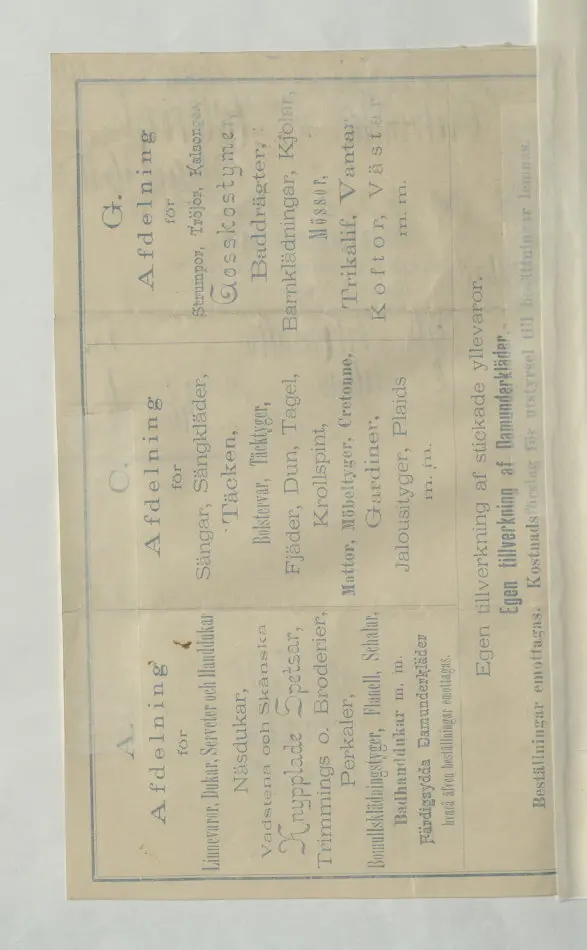 A.
Afdelning
för
Linnevaror, Dukar, Serveter och Handdukar
Näsdukar,
Vadstena och Skånska
Knypplade Spetsar,
Trimmings o. Broderier,
Perkaler,
Bomullsklädningstyger, Flanell, Schalar,
Badhanddukar m. m.
Färdigsydda Damunderkläder
hvarå äfven beställningar emottagas.
C.
Afdelning
för
Sängar, Sängkläder,
Täcken,
Bolstervar, Täcktyger,
Fjäder, Dun, Tagel,
Krollspint,
Mattor, Möbeltyger, Cretonne,
Gardiner,
Jalousityger, Plaids
m. m.
G.
Afdelning
för
Strumpor, Tröjor, Kalsonger,
Gosskostymer,
Baddrägter,
Barnklädningar, Kjolar,
Mössor,
Trikalif, Vantar
Koftor, Västar
m. m.
Egen tillverkning af stickade yllevaror.
Egen tillverkning af Damunderkläder.
Beställningar emottagas. Kostnadsförslag för utstyrsel till beställningar lemnas.